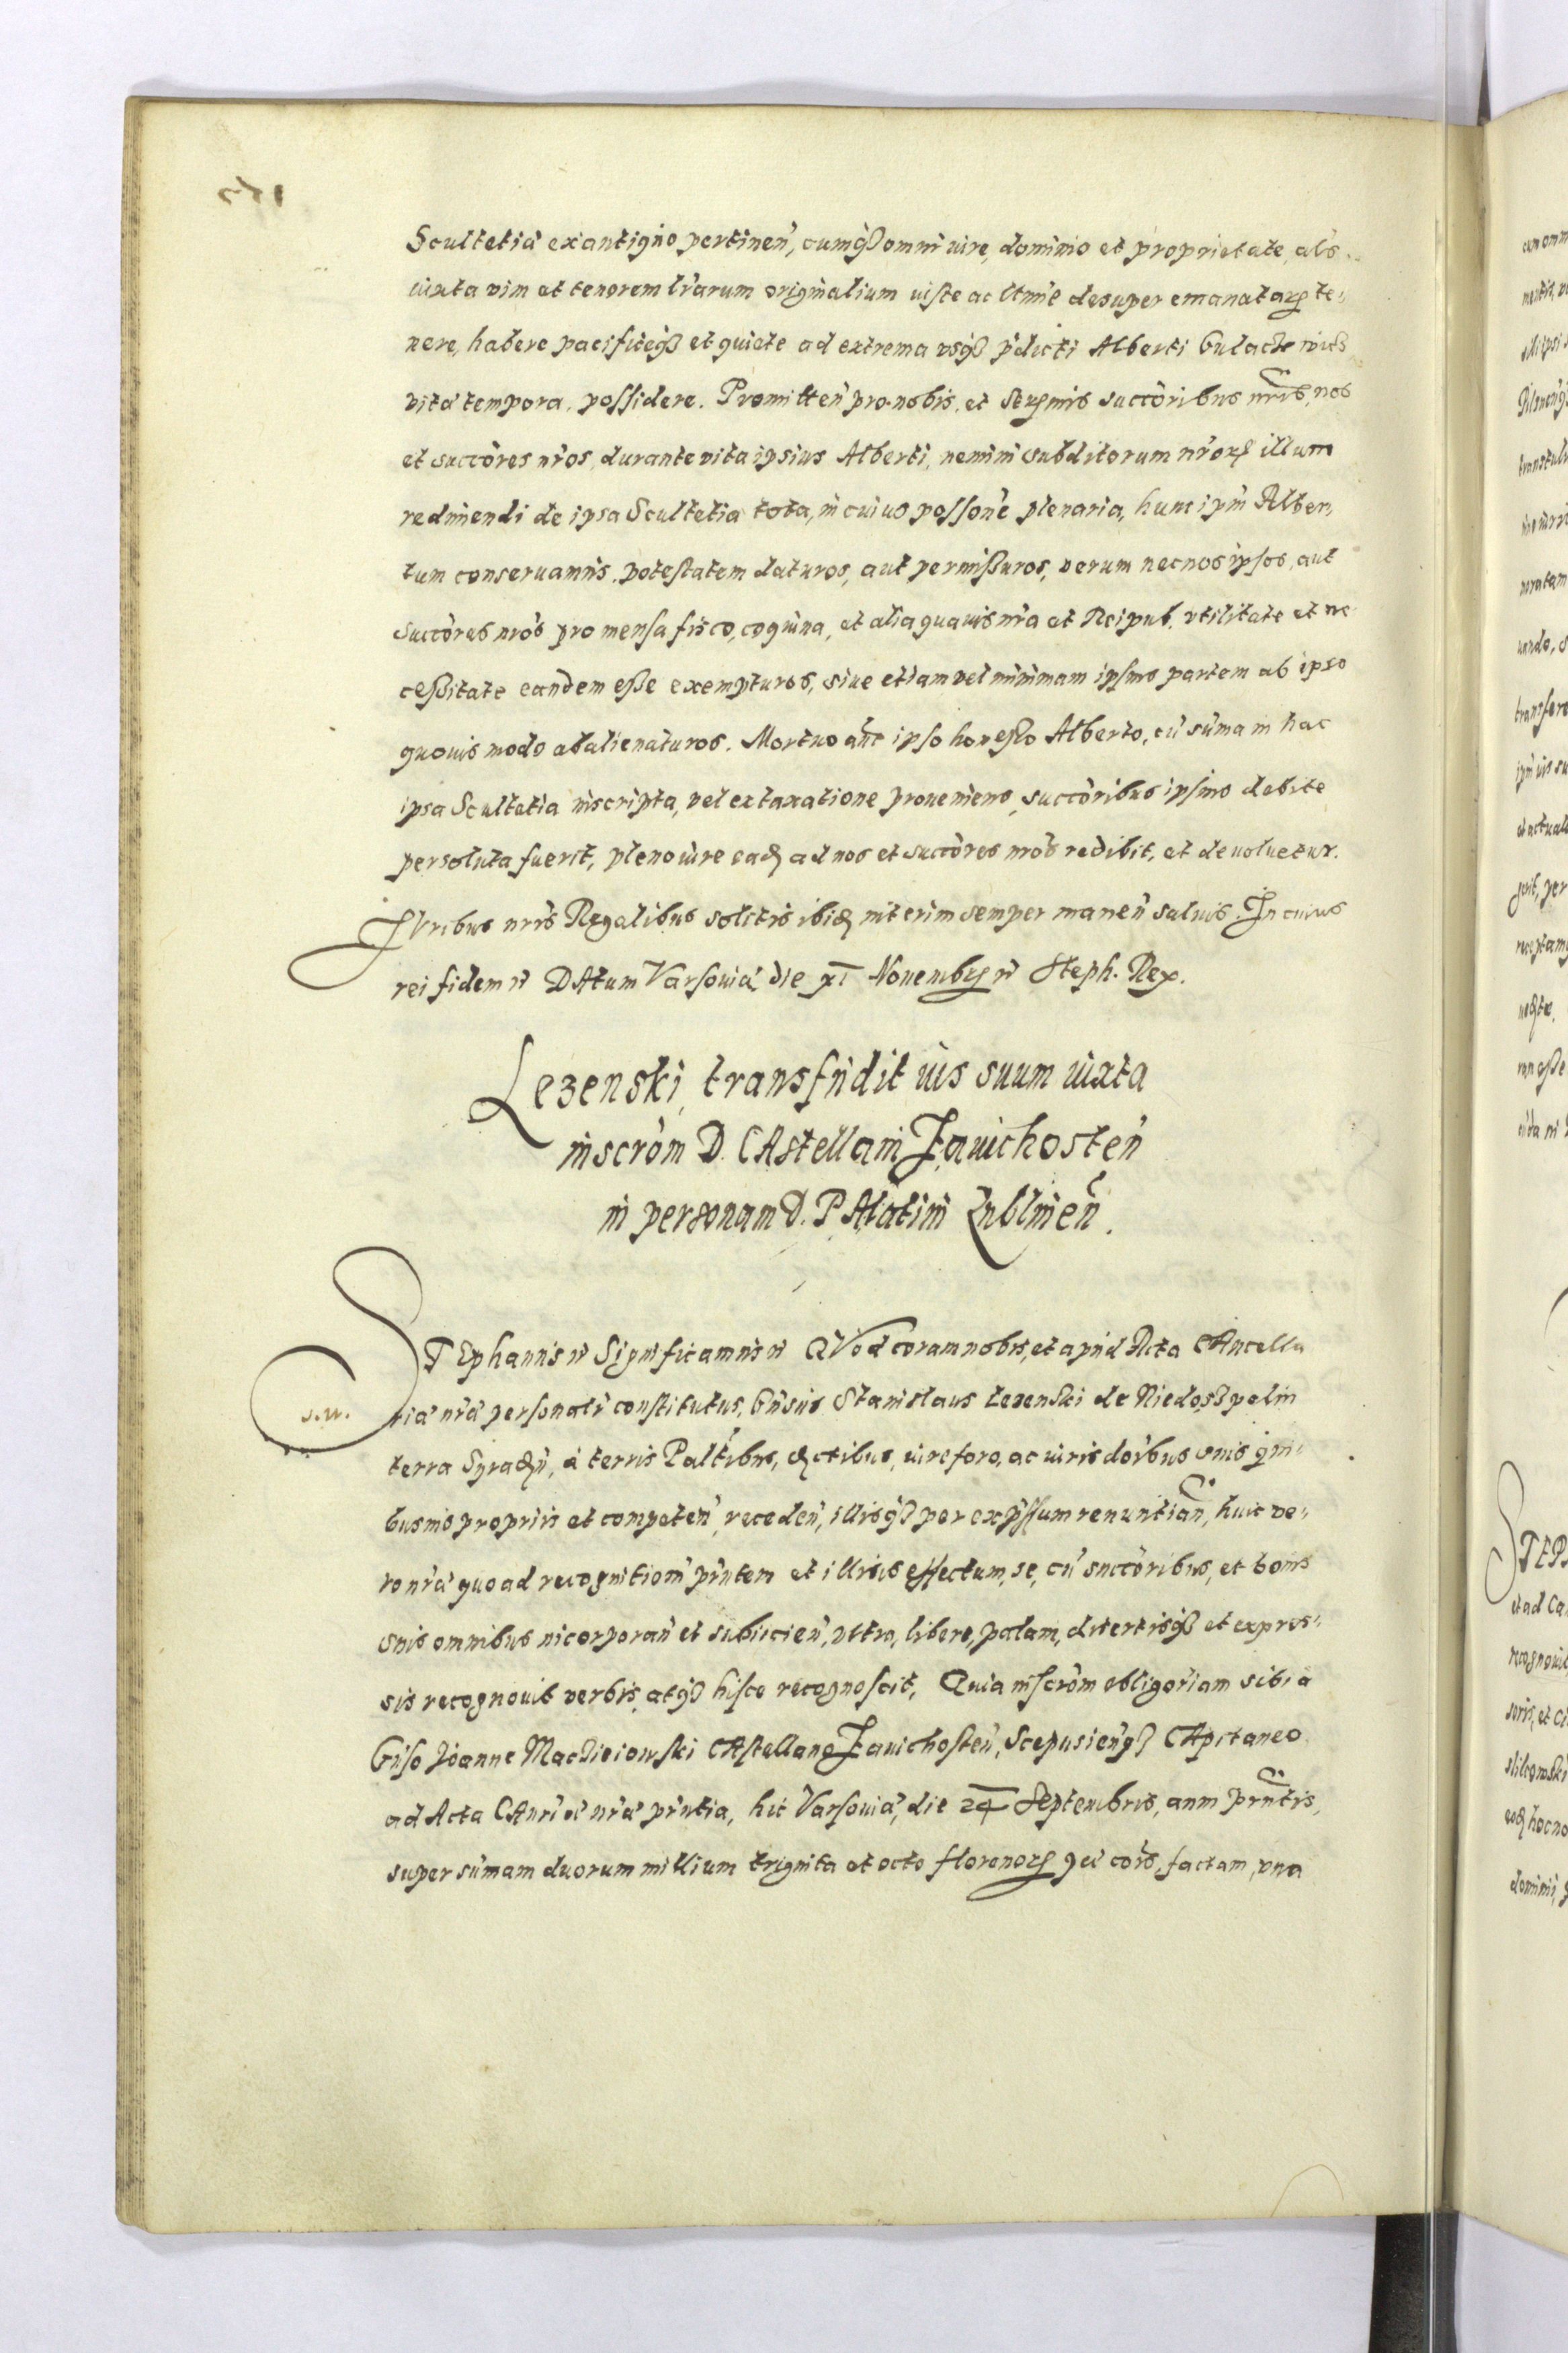 Scultetiā ex antiqúo pertineñ, cumq̃ omni iure, dominio et proprietate, als
iuxta vim et tenorem lrārum originalium iuste ac ltmē desuper emanatarꝝ te„
nere, habere pacificeq̃ et quiete ad extrema vsq̃ p̃dicti Alberti Gulacz
vitæ tempora, possidere. Promitteñ pro nobis, et Serꝝmis succōribus nr̃is, nos
et succōres nr̃os, durante vita ipsius Alberti, nemini subditorum nr̃orꝝ illum
redimendi de ipsa Scultetia tota, in cuius possōne plenaria, hunc ipm̃ Alber„
tum conseruamus, potestatem daturos, aut permißuros, verum nec nos ipsos, aut
succōres nr̃os pro mensa fisco, coquina, et alia quauis nr̃a et Reipub. vtilitate et ne
ceßitate eandem eße exempturos, siue etiam vel minimam ipsius partem ab ipso
quouis modo abalienaturos. Mortuo aũt ipso honesto Alberto, cū sum̄a in hac
ipsa Scultetia inscripta, vel ex taxatione proueniens, succōribus ipsius debite
persoluta fuerit, pleno iure eadꝫ ad nos et succōres nr̃os redibit, et deuoluetur.
IVribus nr̃is Regalibus solitis ibidꝫ interim semper maneñ saluis. In cuius
rei fidem ꝛc̃ DAtum Varsouiæ die XI Nouembrꝫ ꝛc̃ Steph. Rex.
Lezenski transfūdit ius suum iuxta
inscrōm D. CAstellani Zauichosteñ
in personam D. PAlatini Lublineñ.
STEphanus ꝛc̃ Significamus ꝛc̃ QVod coram nobis, et apud Acta CAncella
s.w.
riæ nr̃æ personalr̃ constitutus, Gñsus Stanislaus Lezenski de Niedosspelin
terra Syradꝫñ, à terris Palt̃ibus, dꝫctibus, iure foro, ac iurisdōibus suis qui„
busuis propriis et competeñ, recedeñ, illisq̃ per exp̃ssum renuntiañ, huic ve„
ro nr̃æ quoad recognitioñ pr̃ntem et illius effectum, se, cū succōribus, et bonis
suis omnibus incorporañ et subiicieñ, vltro, libere, palam, disertisq̃ et expres„
sis recognouit verbis, atq̃ hisce recognoscit, Quia inscrōm obligōriam sibi a
Gñso Joanne Maciieiowski CAstellano Zauichosteñ, Scepusieñq̃ CApitaneo
ad Acta CAnr̃iæ nr̃æ pr̃ntia, hic Varsouiæ, die 24 Septembris, anni pr̃ntis,
super sum̄am duorum millium triginta et octo florenorꝝ factam, vna